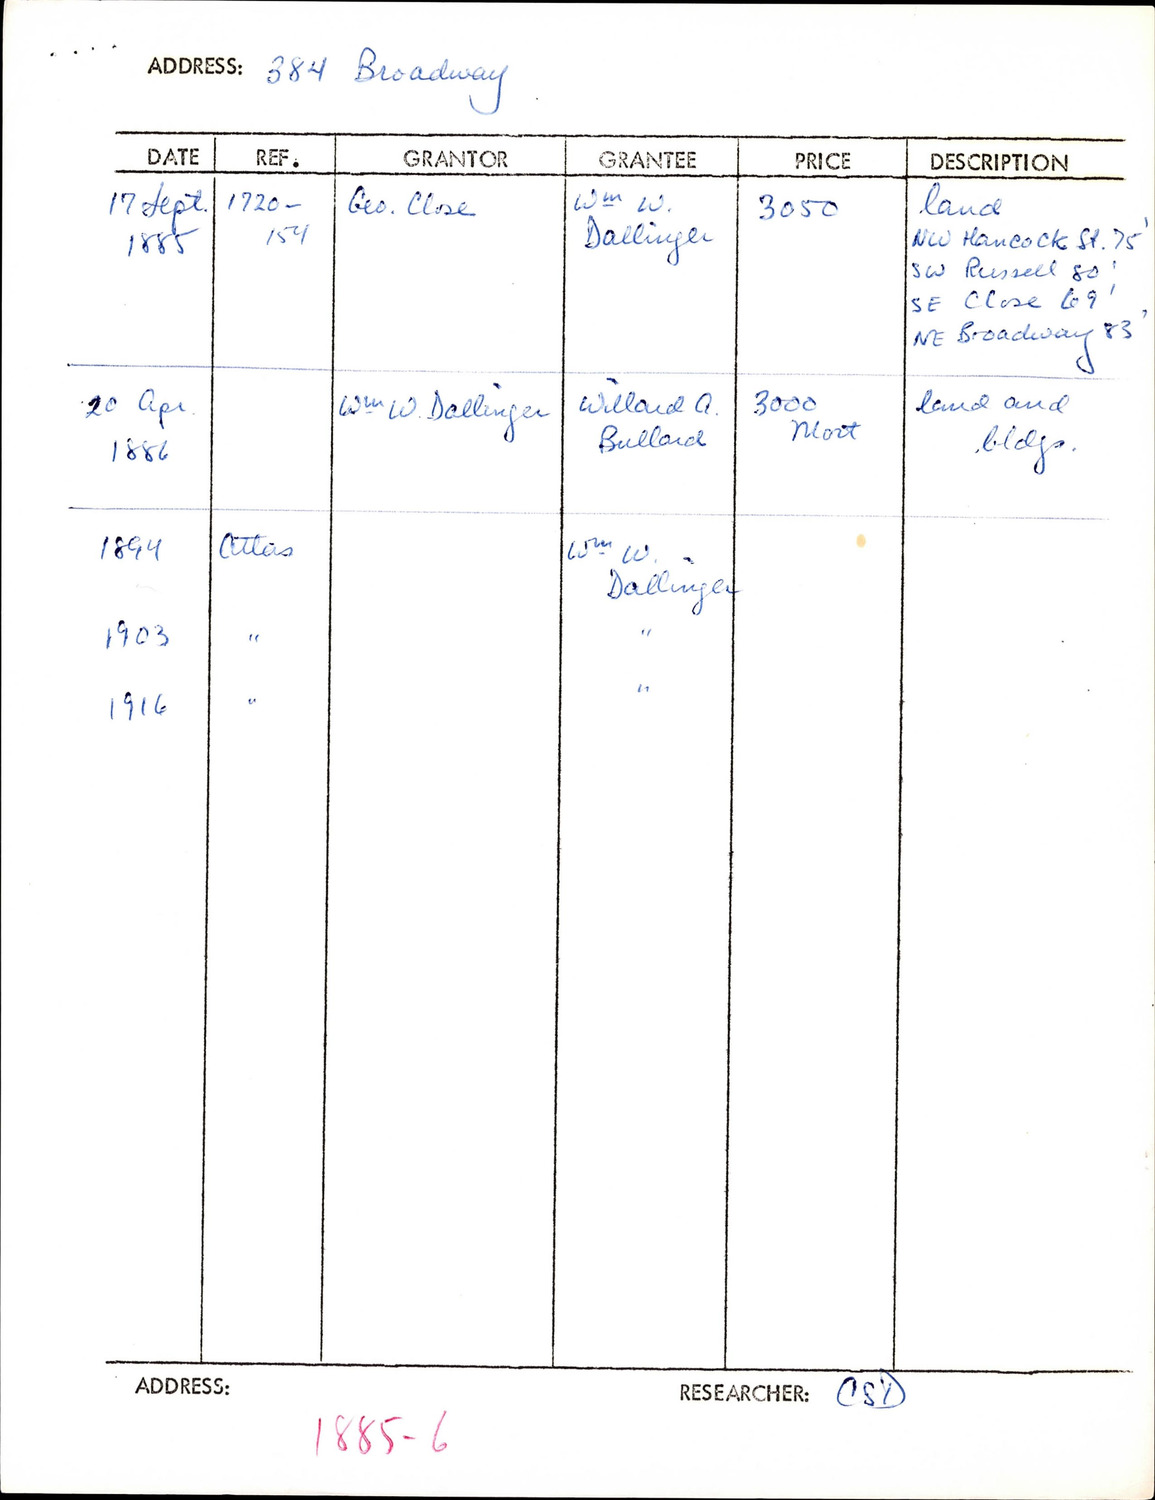 ADDRESS: 384 Broadway
DATE REF. GRANTOR GRANTEE PRICE DESCRIPTION
17 Sept. 1885 1720-154 Geo. Close Wm W. Dallinger 3050 land
NW Hancock St. 75'
SW Russell 80'
SE Close 69'
NE Broadway 83'
20 Apr. 1886 Wm W. Dallinger Willard A. Bullard 3000 Mort land and bldgs.
1894 Atlas Wm W. Dallinger
1903 " "
1916 " "
ADDRESS:
RESEARCHER: CSY
1885-6